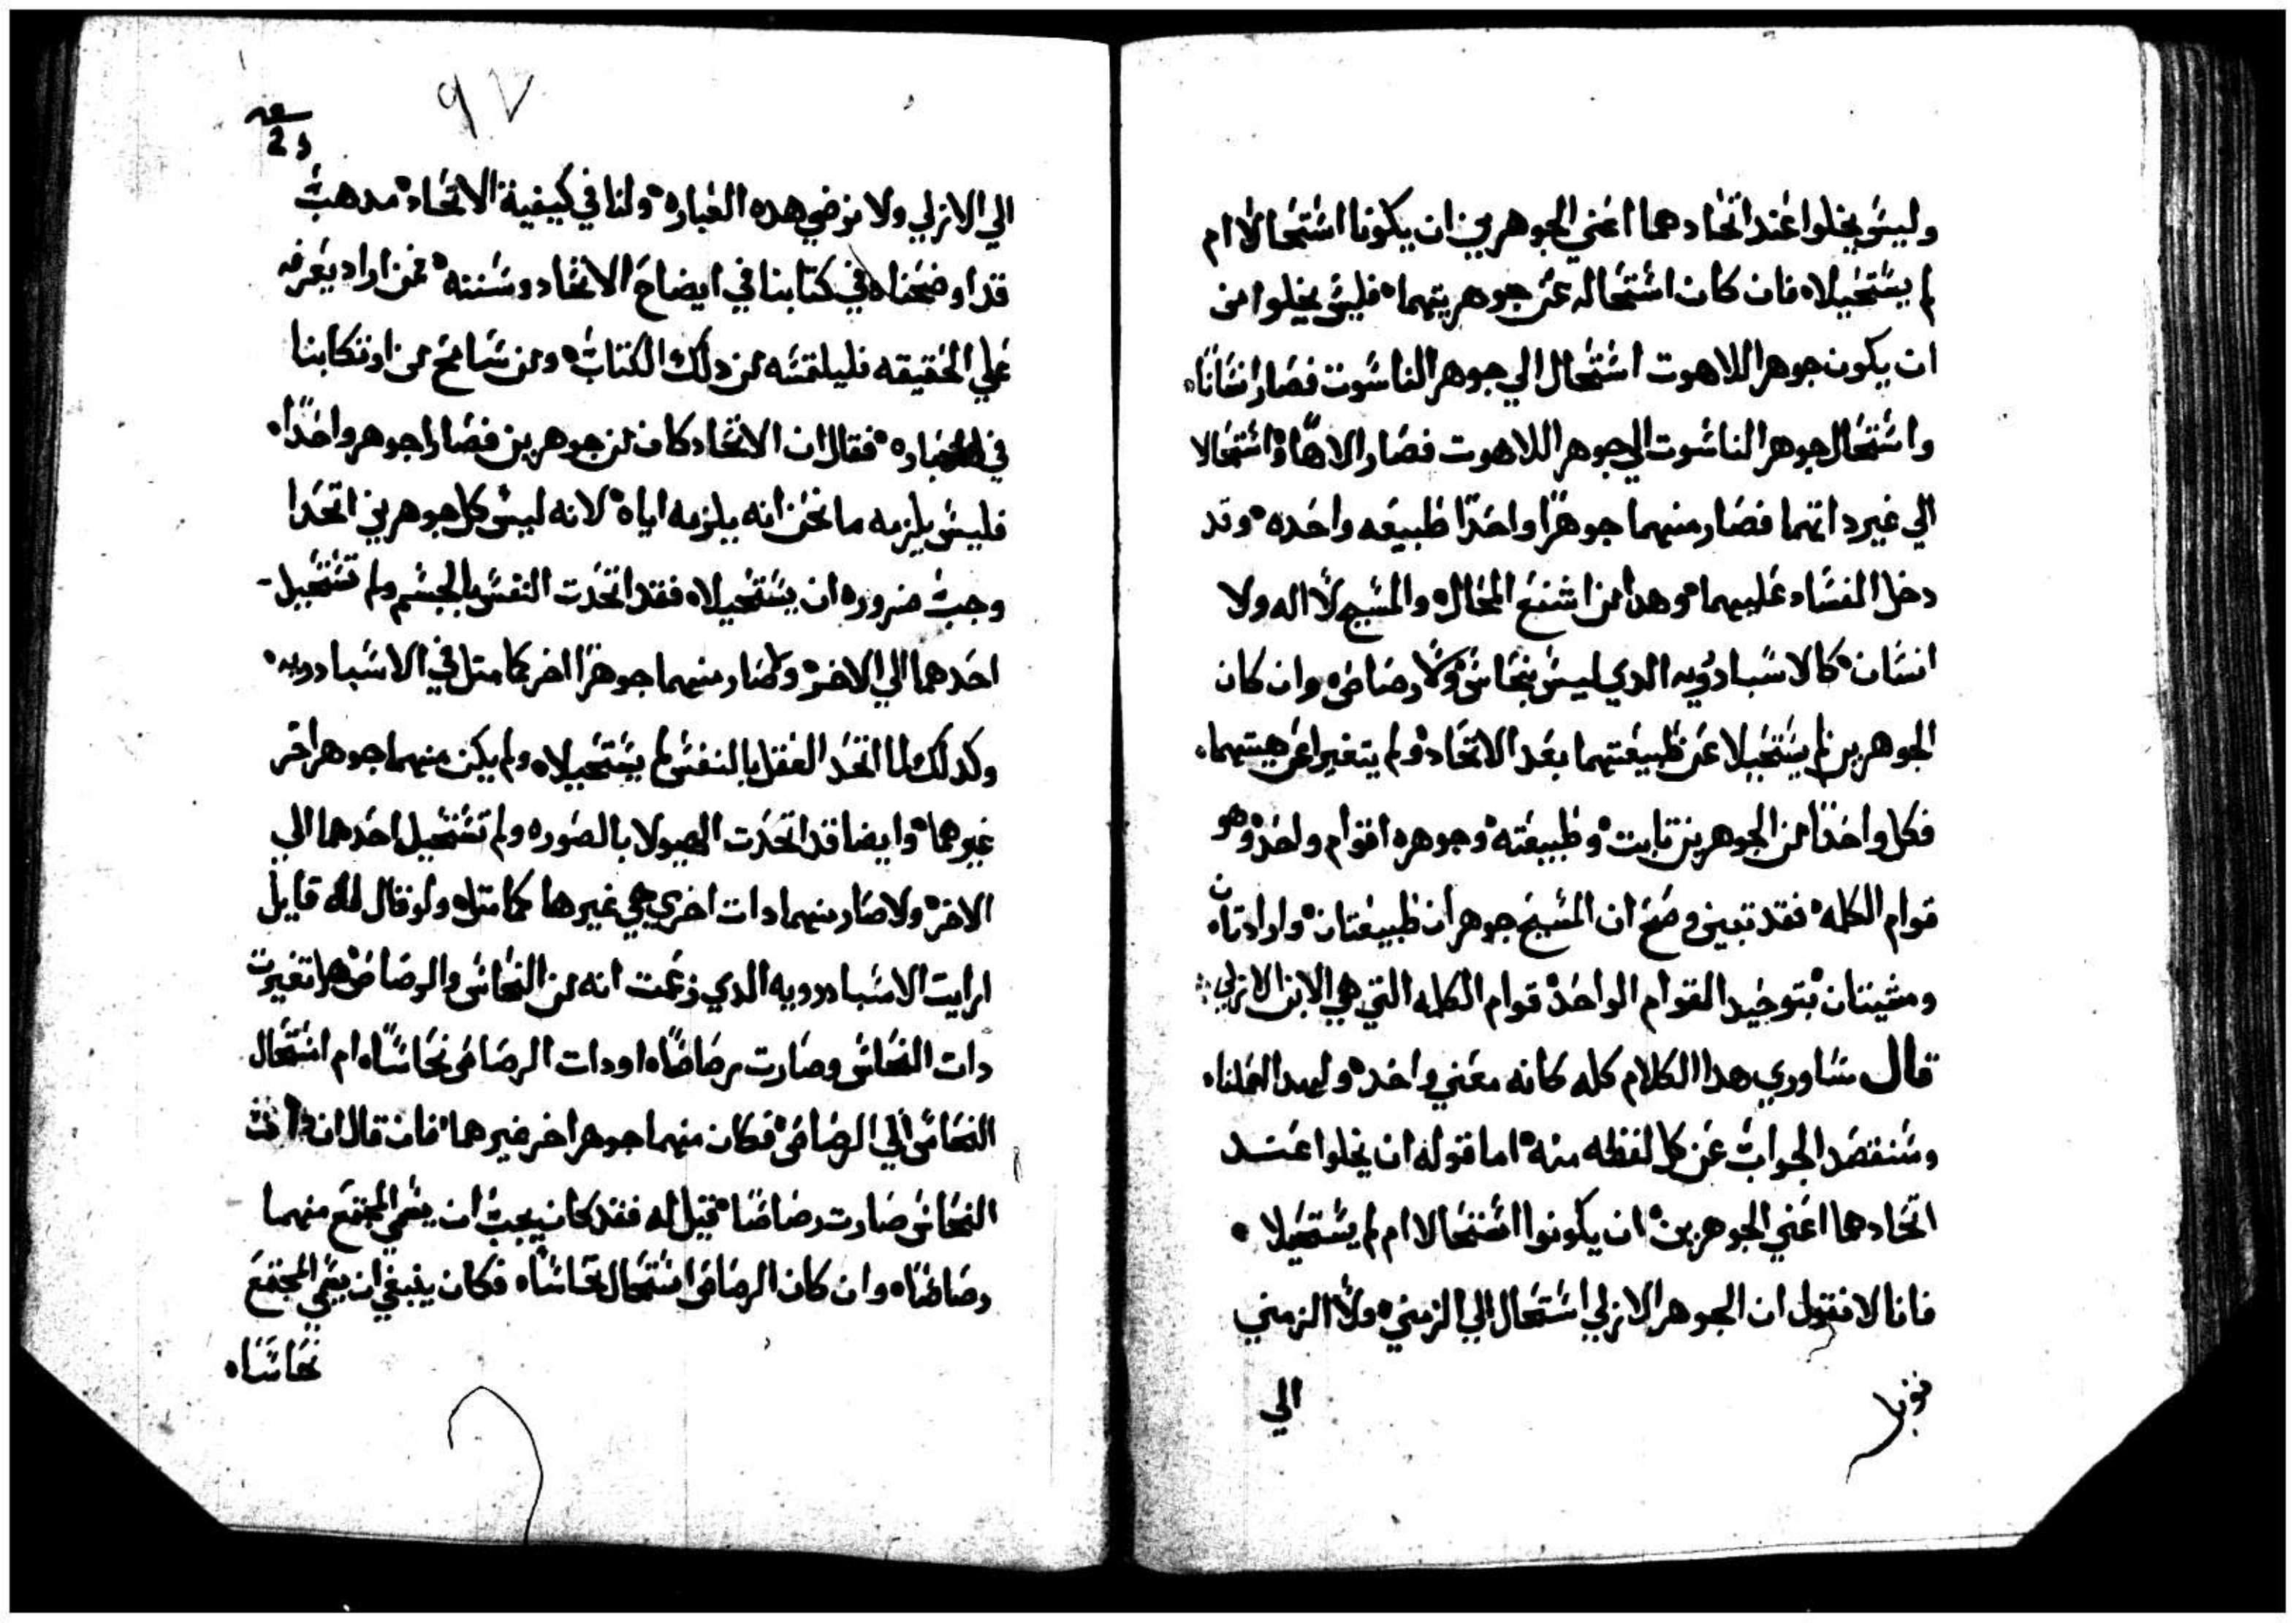 وليس يخلوا عند اتحادهما اعني الجوهرين ان يكونا استحالا ام
لم يستحيلا، فان كان استحاله عن جوهريتهما، فليس يخلوا من
ان يكون جوهر اللاهوت استحال الي جوهر الناسوت فصار انسانًا،
واستحال جوهر الناسوت الي جوهر اللاهوت فصار الاهًا، او استحالا
الي غير داتهما فصار منهما جوهرًا واحدًا طبيعه واحده، وقد
دخل الفساد عليهما، وهدا من اشنع المحال، والمسيح لا اله ولا
انسان، كالاسبادرُيه الدي ليس بنحاس ولا رصاص، وان كان
الجوهرين لم يستحيلا عن طبيعتهما بعد الاتحاد، ولم يتغيرا عن هيتهما،
فكل واحدًا من الجوهرين تابت، وطبيعته، وجوهره اقوام واحد، وهو
قوام الكلمه، فقد تبين وصح ان المسيح جوهران طبيعتان، وارادتان
ومشيتان، بتوحيد القوام الواحد، قوام الكلمه التي هي الابن الازلي :
قال ساوري هدا الكلام كله كانه معني واحد، ولهدا اهملناه
وسنقصد الجواب عن كل لفظه منه، اما قوله ان يخلوا عند
اتحادهما اعني الجوهرين، ان يكونوا استحالا ام لم يستحيلا،
فانا لا نقول ان الجوهر الازلي استحال الي الزمني، ولا الزمني
الي
٩٧
الي الازلي ولا نرضي هده العباره، ولنا في كيفية الاتحاد، مدهب
قد اوضحناه في كتابنا في ايضاح الاتحاد وسننه، فمن اراد يعرفه
علي الحقيقه فليلتمسه من دلك الكتاب، ومن سامح من اوتكابنا
في العباره، فقال ان الاتحاد كان من جوهرين فصارا جوهر واحدًا،
فليس يلزمه ما نحن انه يلزمه اياه، لانه ليس كل جوهرين اتحدا
وجب ضروره ان يستحيلا، فقد اتحدت النفس بالجسم ولم تستحيل
احدهما الي الاخر، ولا صار منهما جوهرًا اخر كما متل في الاسبادرويه،
وكدلك لما اتحد العقل بالنفس لم يستحيلا، ولم يكن منهما جوهر اخر
غيرهما، وايضا قد اتحدت الهيولا بالصوره ولم تستحيل احدهما الي
الاخر، ولا صار منهما دات اخري هي غيرها كما متل، ولو قال له قايل
ارايت الاسبادرويه الدي زعمت انه من النحاس والرصاص، هل تغيرت
دات النحاس وصارت رصاصًا، او دات الرصاص نحاسًا، ام استحال
النحاس الي الرصاص، فكان منهما جوهر اخر غيرهما، فان قال ان دات
النحاس صارت رصاصًا، قيل له فقد كان يجب ان يسمي المجتمع منهما
رصاصًا، وان كان الرصاص استحال نحاسًا، فكان ينبغي ان يسمي المجتمع
نحاسًا،